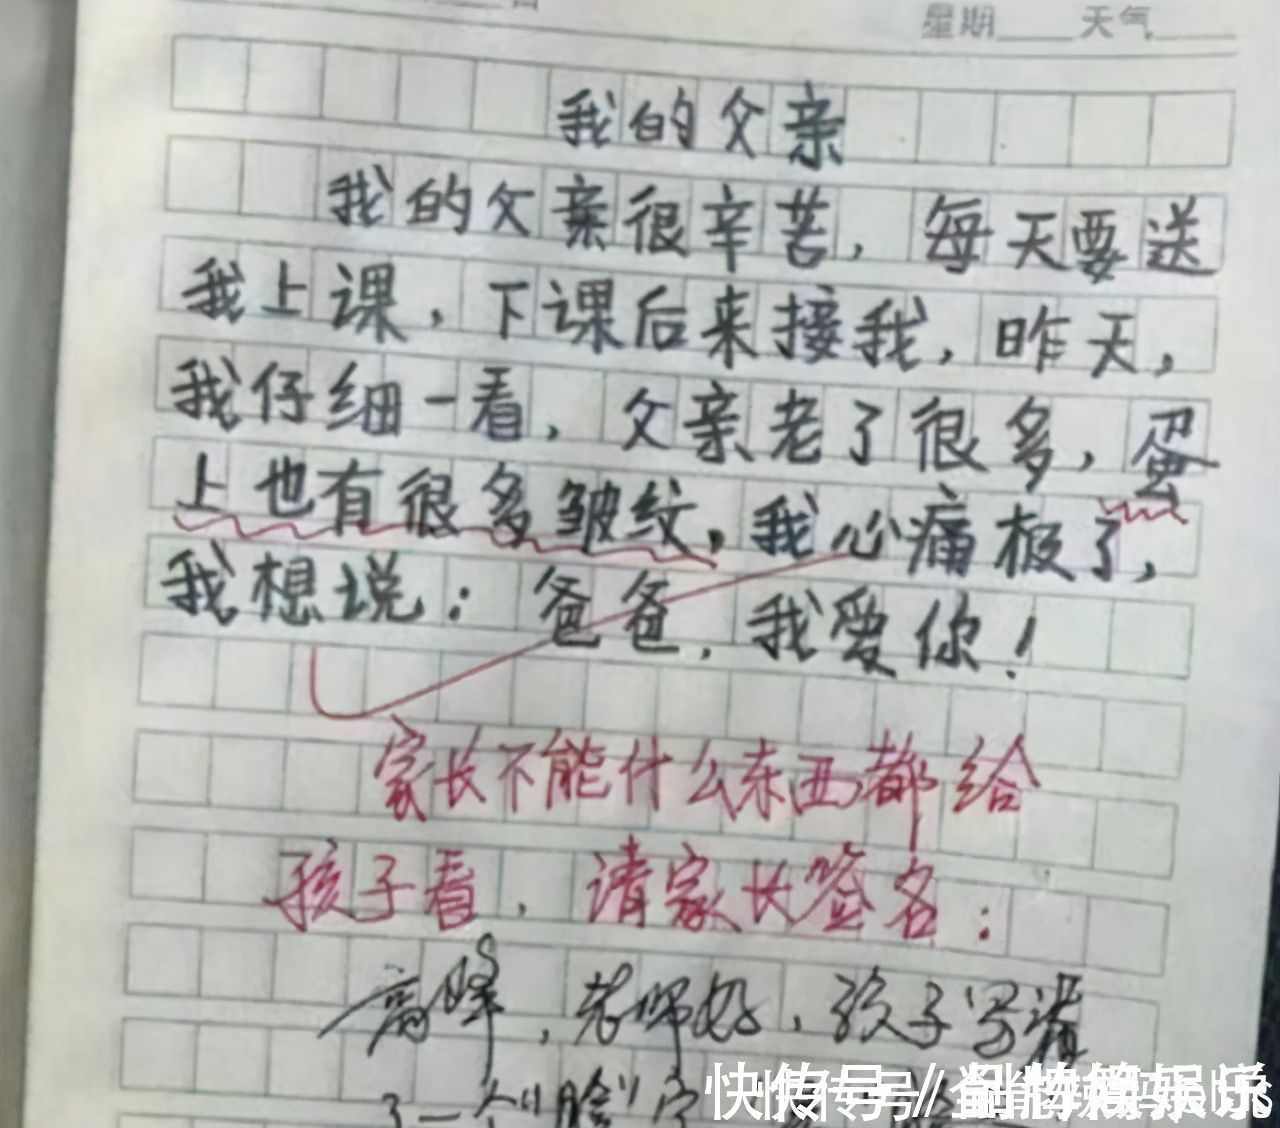 星期____天气____
我的父亲
我的父亲很辛苦，每天要送
我上课，下课后来接我，昨天，
我仔细一看，父亲老了很多，蛋
上也有很多皱纹，我心痛极了，
我想说：爸爸，我爱你！
家长不能什么东西都给
孩子看，请家长签名：
高峰，老师好，孩子写错
了一个"脸"字
快传号//